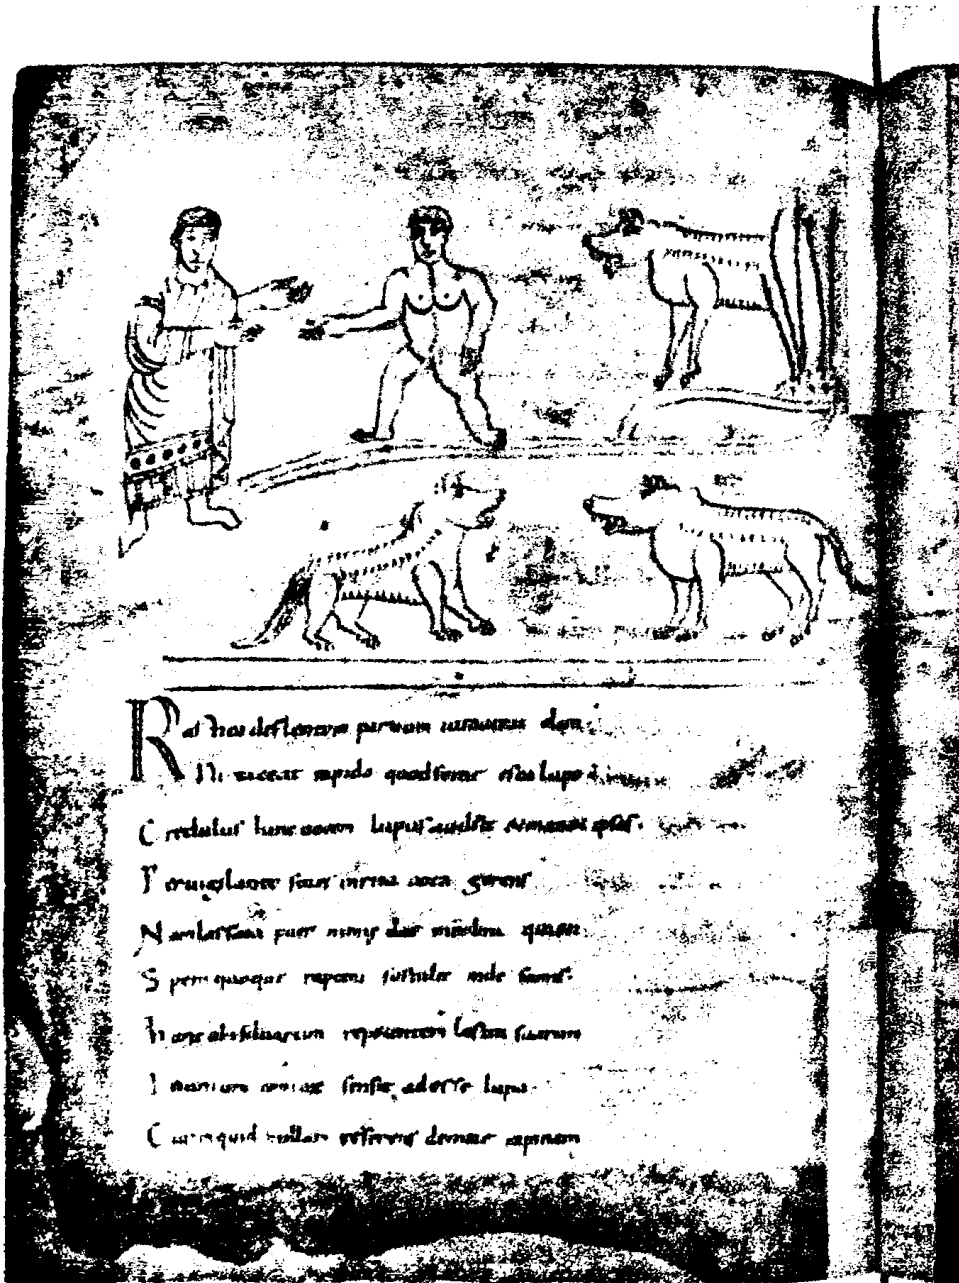 deflentem paruum iurauerat olim
Ni taceat rapido quod foret esca lupo
Credulus hanc uocem lupus audiit
Peruigil ante fores irrita uota gerens
Nam lassata puer nimię dat membra
Spem quoque raptori sustulit inde
hunc ubi siluarum repetentem lustra suarum
sensit adesse lupa
Cur inquid nullam referens rapinam